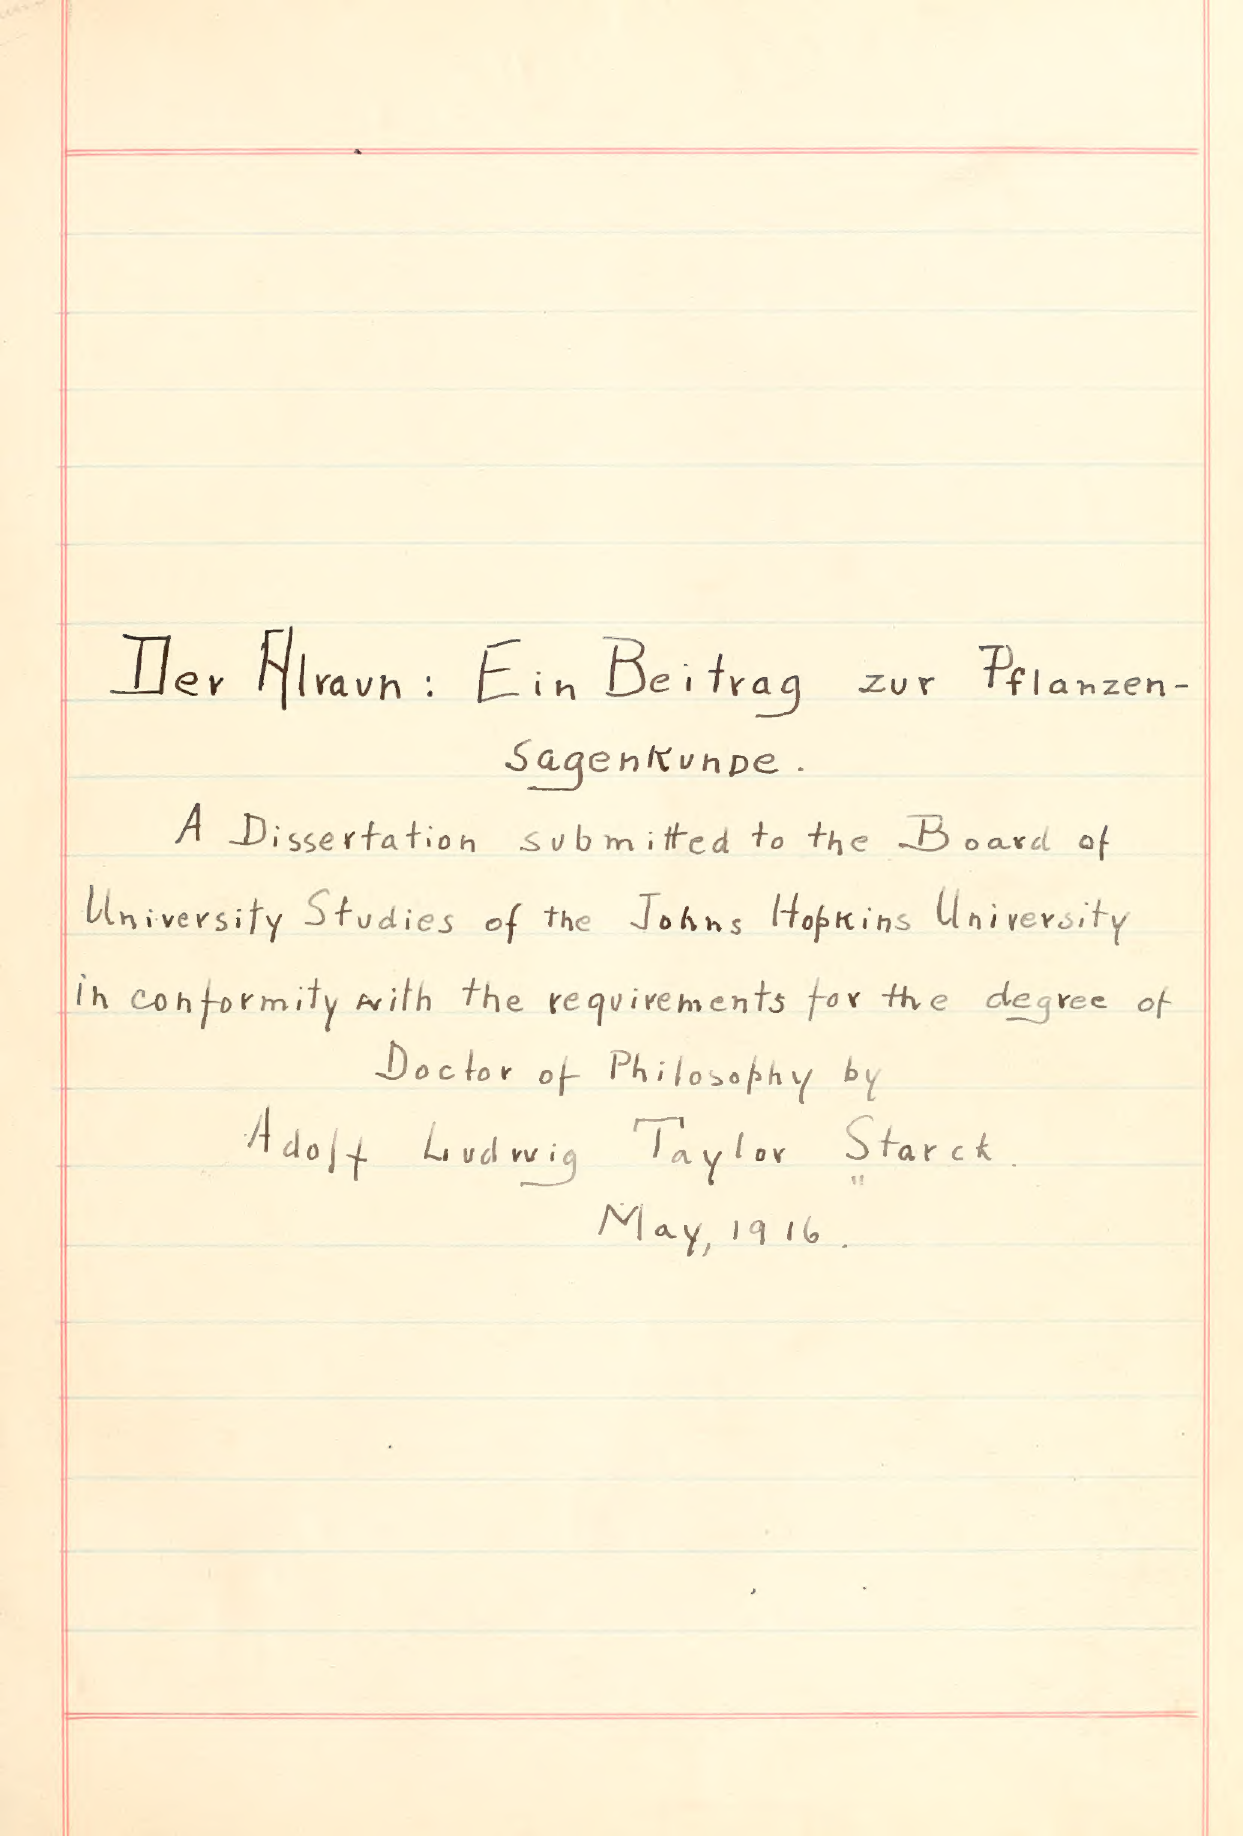 Der Alraun: Ein Beitrag zur Pflanzen-
sagenkunde.
A Dissertation submitted to the Board of
University Studies of the Johns Hopkins University
in conformity with the requirements for the degree of
Doctor of Philosophy by
Adolf Ludwig Taylor Starck.
May, 1916.